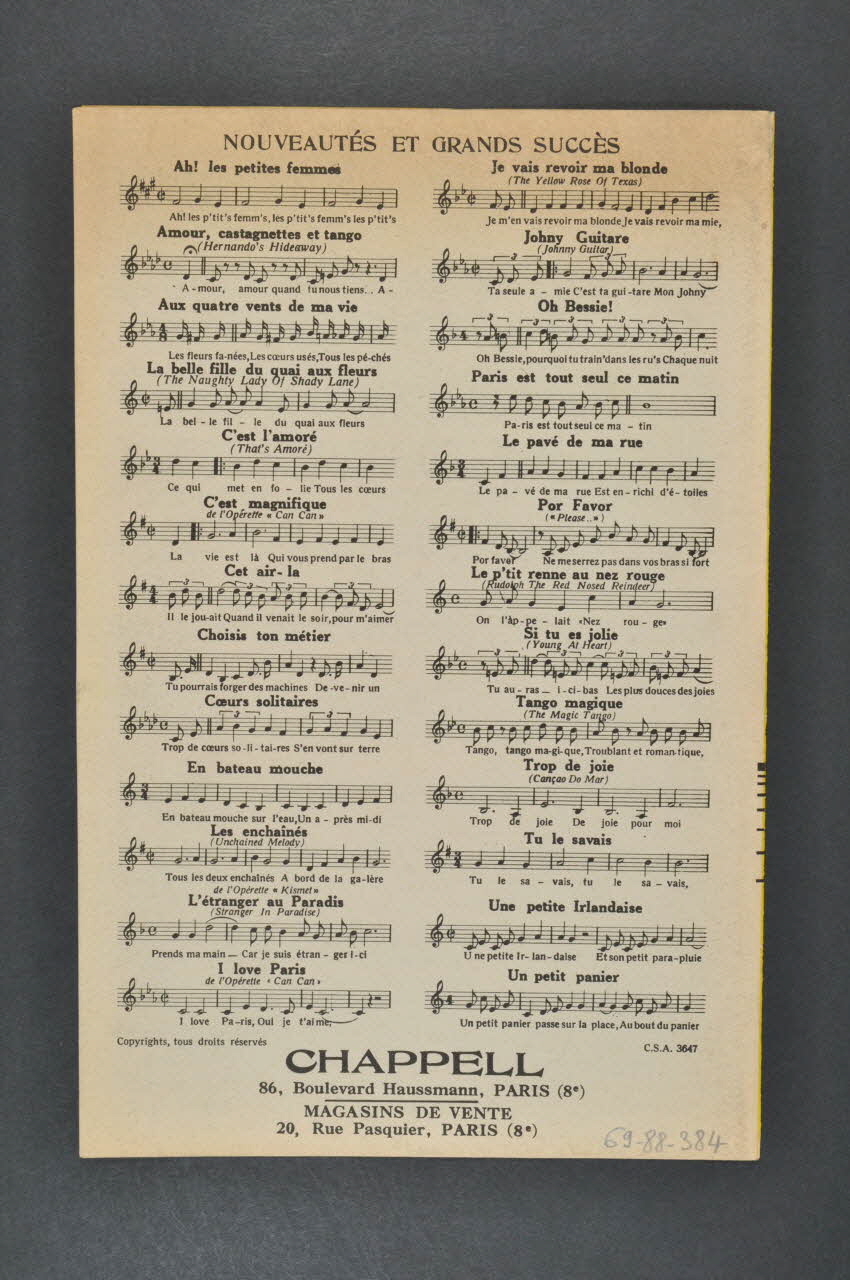 NOUVEAUTÉS ET GRANDS SUCCÈS
Ah! les petites femmes
Ah! les p'tit's femm's, les p'tit's femm's les p'tit's
Amour, castagnettes et tango
(Hernando's Hideaway)
A-mour, amour quand tu nous tiens.. A-
Aux quatre vents de ma vie
Les fleurs fa-nées, Les cœurs usés, Tous les pé-chés
La belle fille du quai aux fleurs
(The Naughty Lady Of Shady Lane)
La bel-le fil-le du quai aux fleurs
C'est l'amoré
(That's Amoré)
Ce qui met en fo-lie Tous les cœurs
C'est magnifique
de l'Opérette « Can Can »
La vie est là Qui vous prend par le bras
Cet air-la
Il le jou-ait Quand il venait le soir, pour m'aimer
Choisis ton métier
Tu pourrais forger des machines De-ve-nir un
Cœurs solitaires
Trop de cœurs so-li-tai-res S'en vont sur terre
En bateau mouche
En bateau mouche sur l'eau, Un a-près mi-di
Les enchaînés
(Unchained Melody)
Tous les deux enchaînés A bord de la ga-lère
de l'Opérette « Kismet »
L'étranger au Paradis
(Stranger In Paradise)
Prends ma main — Car je suis étran-ger i-ci
I love Paris
de l'Opérette « Can Can »
I love Pa-ris, Oui je t'aime,
Je vais revoir ma blonde
(The Yellow Rose Of Texas)
Je m'en vais revoir ma blonde Je vais revoir ma mie,
Johny Guitare
(Johnny Guitar)
Ta seule a-mie C'est ta gui-tare Mon Johny
Oh Bessie!
Oh Bessie, pourquoi tu train' dans les ru's Chaque nuit
Paris est tout seul ce matin
Pa-ris est tout seul ce ma-tin
Le pavé de ma rue
Le pa-vé de ma rue Est en-richi d'é-toiles
Por Favor
(« Please.. »)
Por favor Ne me serrez pas dans vos bras si fort
Le p'tit renne au nez rouge
(Rudolph The Red Nosed Reindeer)
On l'ap-pe-lait «Nez rou-ge»
Si tu es jolie
(Young At Heart)
Tu au-ras — i-ci-bas Les plus douces des joies
Tango magique
(The Magic Tango)
Tango, tango ma-gi-que, Troublant et roman-tique,
Trop de joie
(Cançao Do Mar)
Trop de joie De joie pour moi
Tu le savais
Tu le sa-vais, tu le sa-vais,
Une petite Irlandaise
Une petite Ir-lan-daise Et son petit para-pluie
Un petit panier
Un petit panier passe sur la place, Au bout du panier
Copyrights, tous droits réservés
C.S.A. 3647
CHAPPELL
86, Boulevard Haussmann, PARIS (8e)
MAGASINS DE VENTE
20, Rue Pasquier, PARIS (8e)
69-88-384